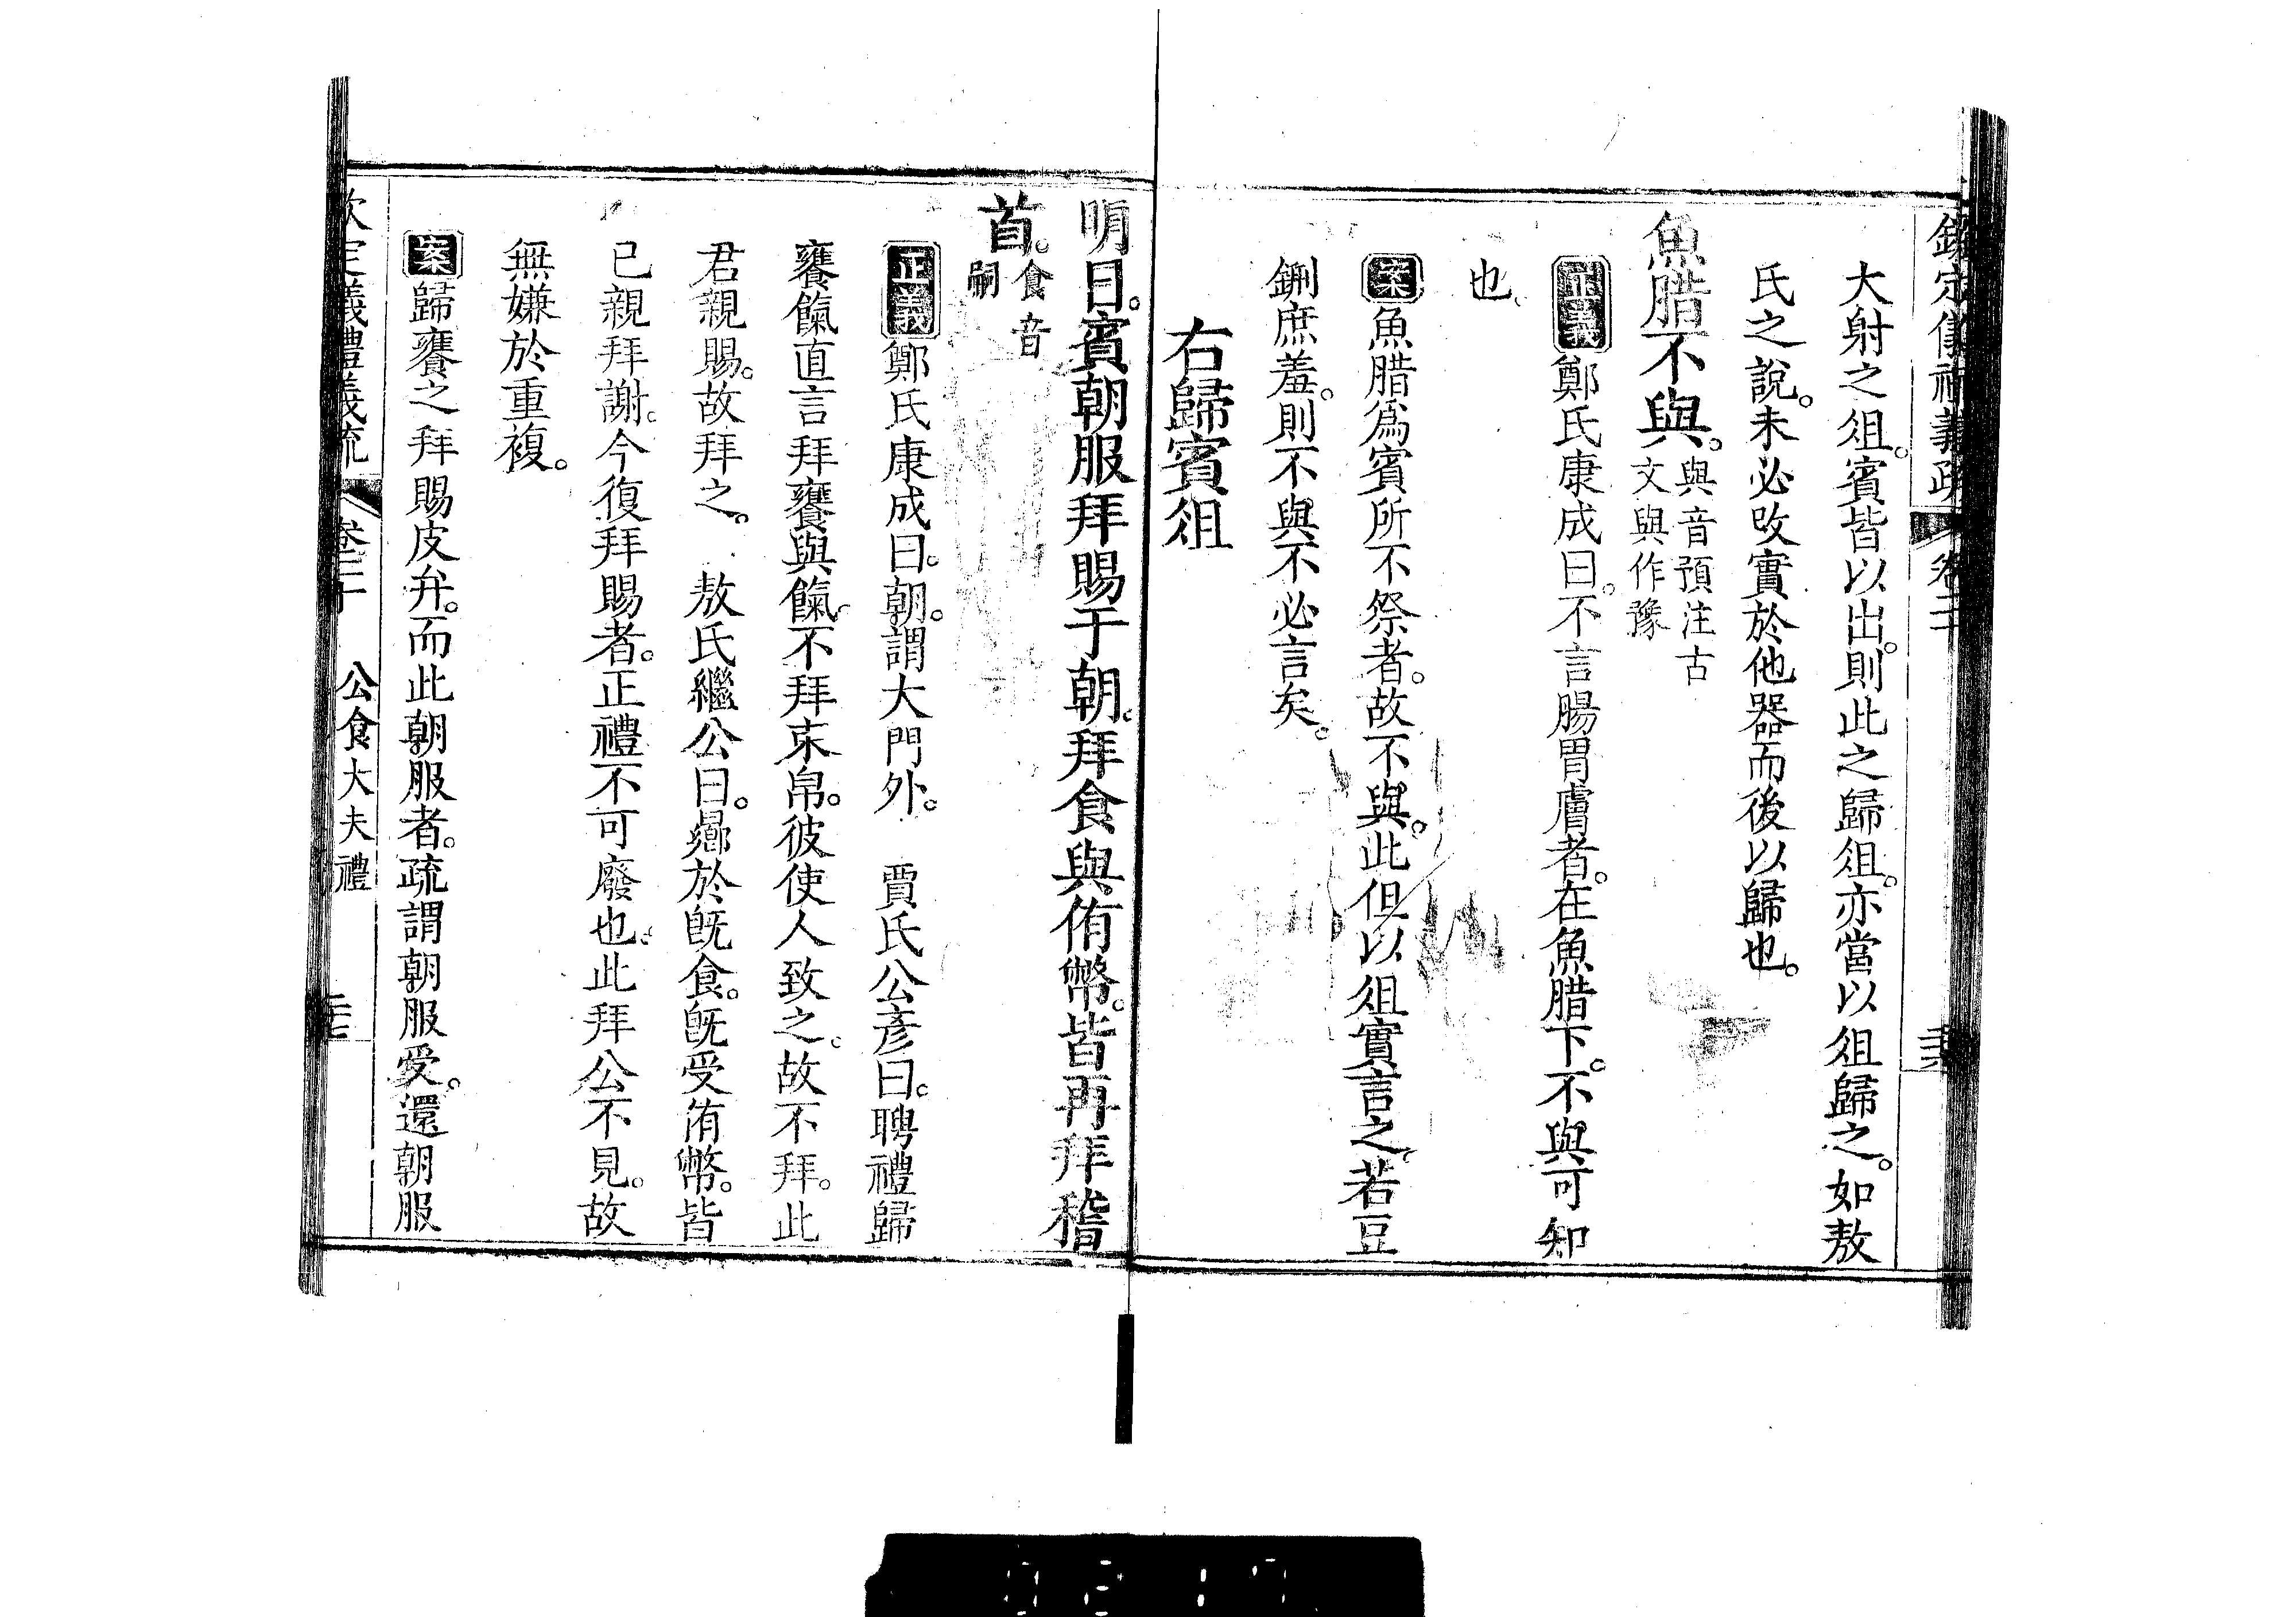 欽定儀禮義疏 卷二十
大射之俎。賓皆以出。則此之歸俎。亦當以俎歸之。如敖
氏之說。未必改實於他器而後以歸也。
魚腊不與。與音預注古
文與作豫
正義鄭氏康成曰。不言腸胃膚者。在魚腊下。不與可知
也。
案魚腊爲賓所不祭者。故不與。此但以俎實言之。若豆
鉶庶羞。則不與不必言矣。
右歸賓俎
明日。賓朝服拜賜于朝。拜食與侑幣。皆再拜稽
首。食音
嗣
正義鄭氏康成曰。朝。謂大門外。 賈氏公彥曰。聘禮歸
饔餼直言拜饔與餼。不拜束帛。彼使人致之。故不拜。此
君親賜。故拜之。 敖氏繼公曰。曏於旣食。旣受侑幣。皆
已親拜謝。今復拜賜者。正禮不可廢也。此拜公不見。故
無嫌於重複。
案歸饔之拜賜皮弁。而此朝服者。疏謂朝服受。還朝服
欽定儀禮義疏 卷二十 公食大夫禮